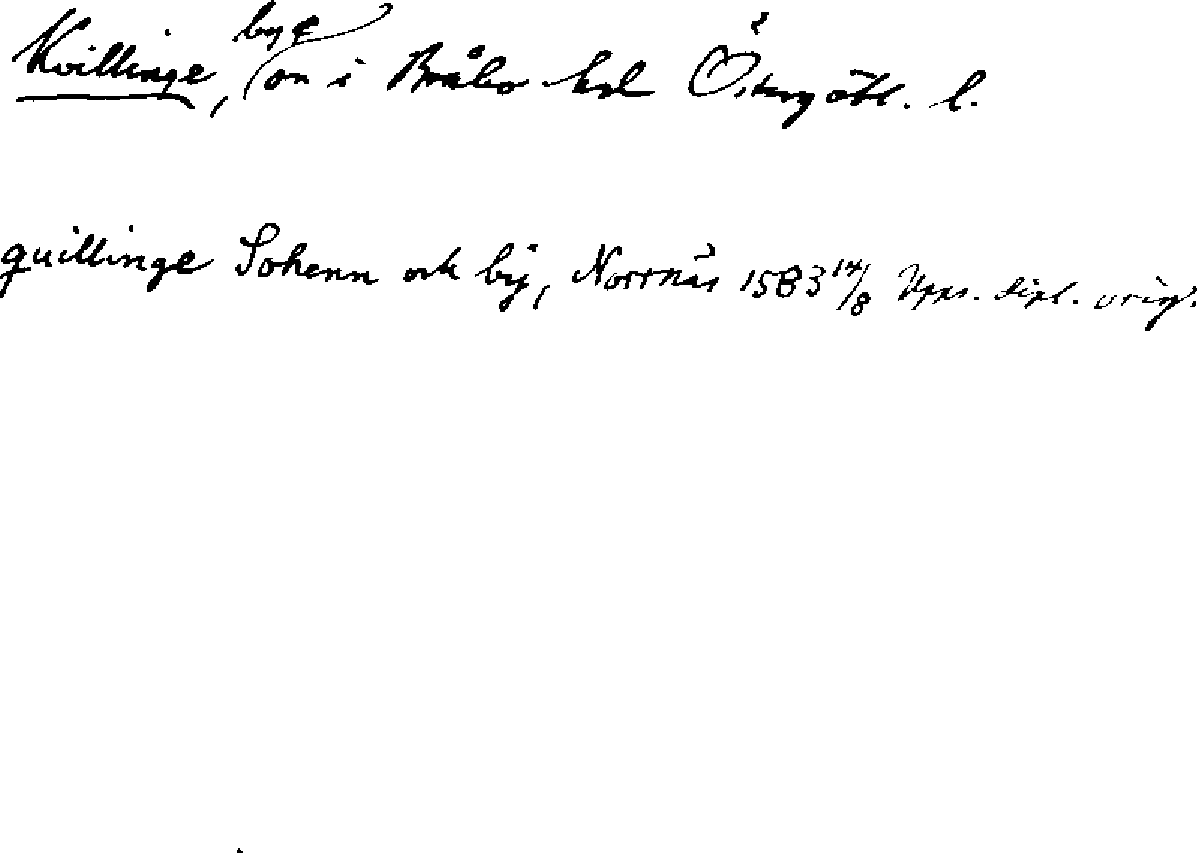 Kvillinge, by o sn i Bråbo hd Östergötl. l.
quillinge Sohenn och bÿ, Norrnäs 1583 14/8 Upps. dipl. orig.